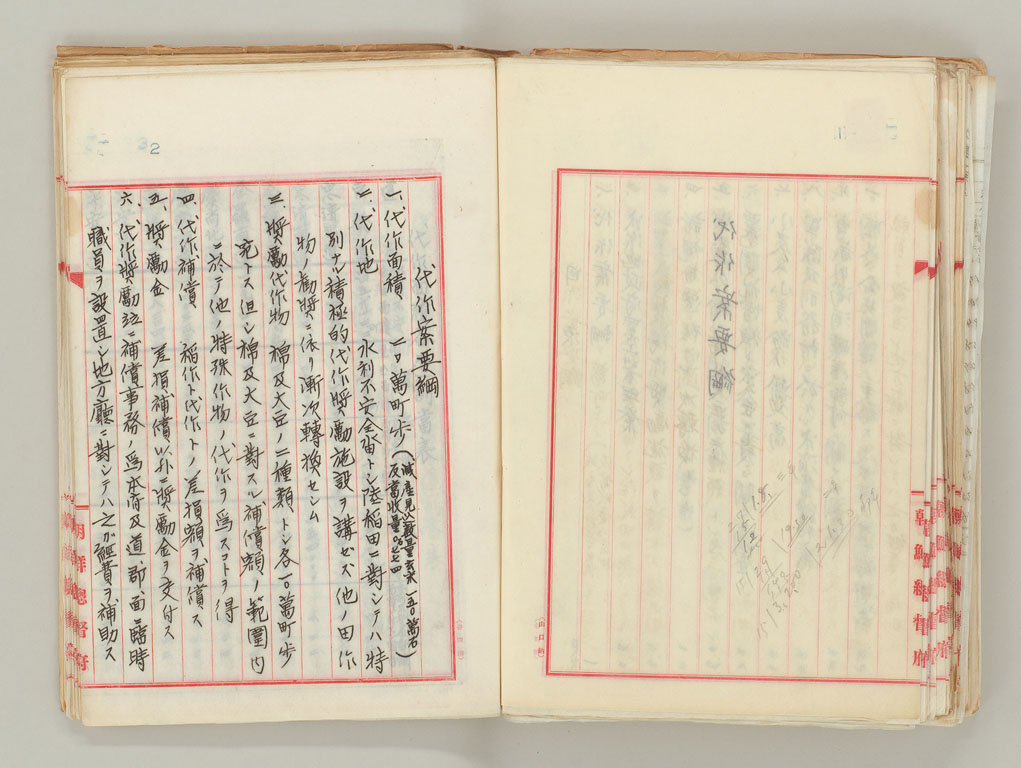 代作案要綱
一、代作面積 二〇萬町歩(減産見込數量玄米一五〇萬石
反當收量〇.七七四)
二、代作地 水利不安全畓トシ陸稻田ニ對シテハ特
別ナル積極的代作奬勵施設ヲ講ゼズ他ノ田作
物ノ勸奬ニ依リ漸次轉換セシム
三、奬勵代作物 棉及大豆ノ二種類トシ各一〇萬町歩
宛トス但シ棉及大豆ニ對スル補償額ノ範圍内
ニ於テ他ノ特殊作物ノ代作ヲ爲スコトヲ得
四、代作補償 稻作ト代作トノ差損額ヲ補償ス
五、奬勵金 差損補償以外ニ奬勵金ヲ交付ス
六、代作奬勵竝ニ補償事務ノ爲本府及道、郡、面ニ臨時
職員ヲ設置シ地方廳ニ對シテハ之ガ經費ヲ補助ス
朝鮮總督府
2